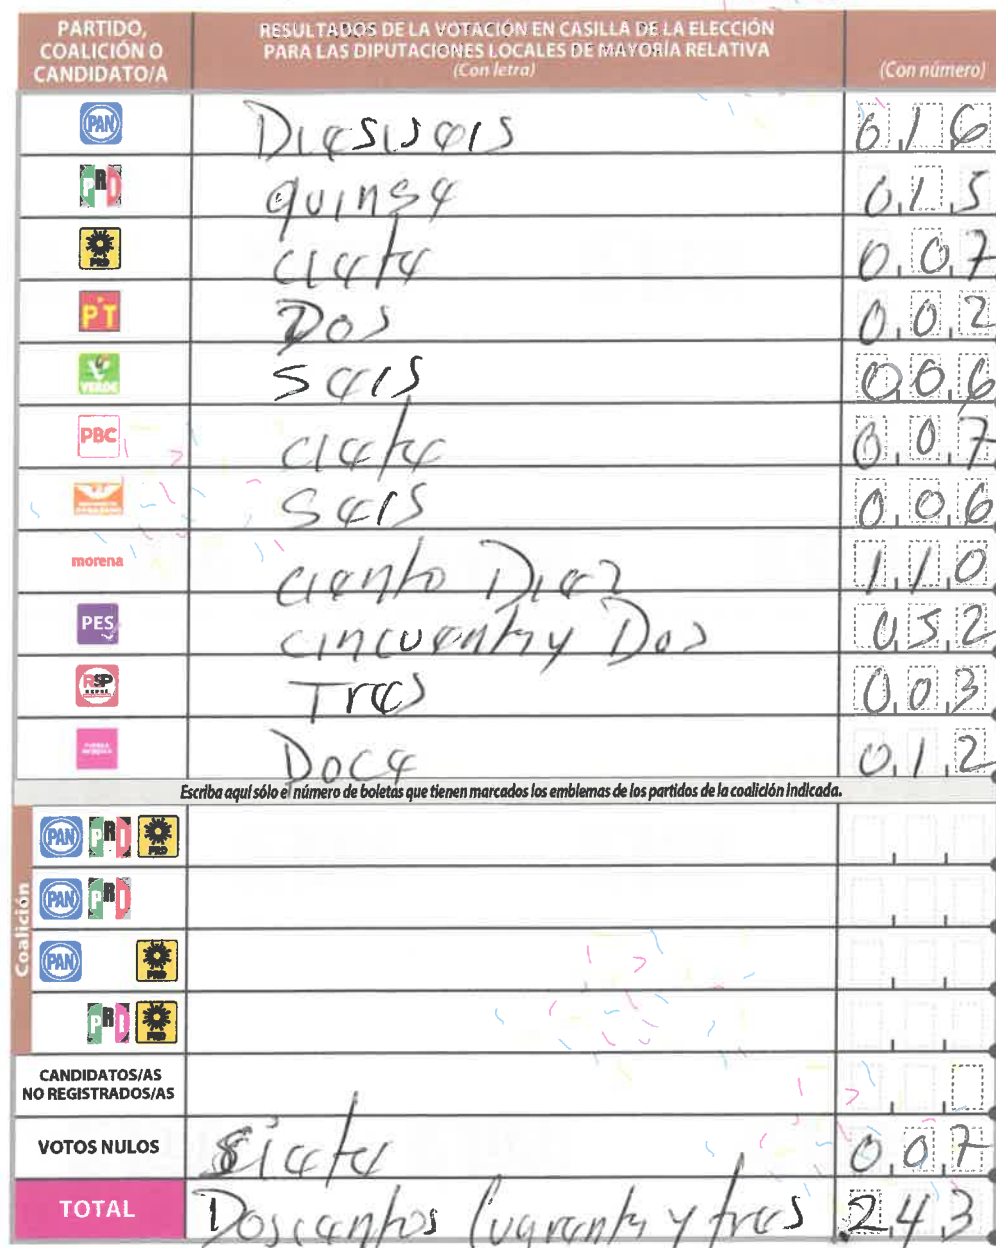 PARTIDO, COALICIÓN O CANDIDATO/A
RESULTADOS DE LA VOTACIÓN EN CASILLA DE LA ELECCIÓN PARA LAS DIPUTACIONES LOCALES DE MAYORÍA RELATIVA
(Con letra)
(Con número)
PAN Diesiseis 016
PRI quinse 015
PRD ciete 007
PT Dos 002
VERDE Seis 006
PBC ciete 007
Seis 006
morena ciento Diez 110
PES cincuenta y Dos 052
RSP Tres 003
Doce 012
Escriba aquí sólo el número de boletas que tienen marcados los emblemas de los partidos de la coalición indicada.
Coalición
PAN PRI PRD
PAN PRI
PAN PRD
PRI PRD
CANDIDATOS/AS NO REGISTRADOS/AS
VOTOS NULOS Siete 007
TOTAL Doscentos Cuarenta y tres 243